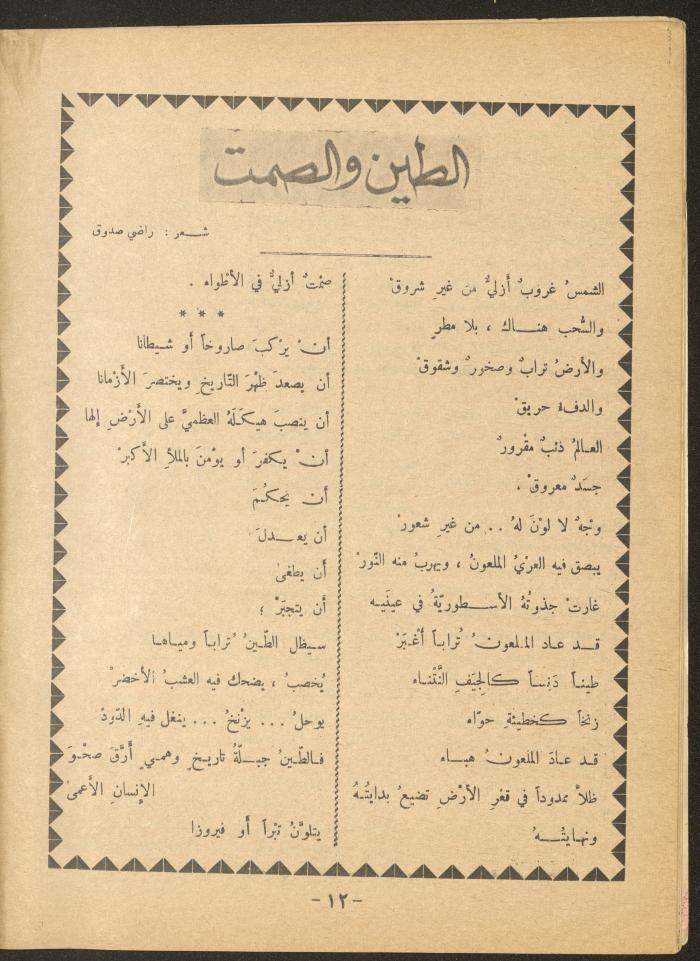 الطين والصمت
شعر : راضي صدوق
الشمسُ غروبٌ أَزليٌّ من غيرِ شروقْ
والسُّحب هناك ، بلا مطرٍ
والأرضُ ترابٌ وصخورٌ وشقوقْ
والدفءُ حريقْ
العالمُ ذئبٌ مقْرورٌ
جسَدٌ معروقْ .
وجْهٌ لا لوْنَ لهُ . . من غيرِ شعورْ
يبصق فيه العريُ الملعونُ ، ويهربُ منه النّورْ
غارتْ جذوتُهُ الأسطوريّةُ في عينَيه
قد عاد الملعونُ تُراباً أغْبَرْ
طيناً دَنِساً كالجِيَفِ النَّتْناء
زنخاً كخطيئةِ حوّاء
قد عادَ الملعونُ هباء
ظلاًّ ممدوداً في قعْرِ الأرْضِ تضيعُ بدايتُهُ
ونهايتُهُ
صمْتٌ أزليٌّ في الأطْواء .
* * *
أنْ يرْكبَ صاروخاً أو شيطانا
أن يصعدَ ظهْرَ التّاريخِ ويختصرَ الأزْمانا
أن ينصبَ هيكلَهُ العظميَّ على الأرْضِ إلها
أنْ يكفرَ أو يؤمنَ بالملأِ الأكبرْ
أن يحكُمَ
أن يعدلَ
أن يطغى
أن يتجبّرْ ؛
سيظل الطّينُ تُراباً ومياها
يُخصبُ ، يضحك فيه العشبُ الأخضرْ
يوحلُ . . . يزْنخُ . . . ينغل فيهِ الدّودْ
فالطّينُ جبلّةُ تاريخٍ وهميٍ أرَّقَ صحْوَ
الإنسانِ الأعمىْ
يتلوَّنُ تبْراً أو فيروزا
- ١٢ -